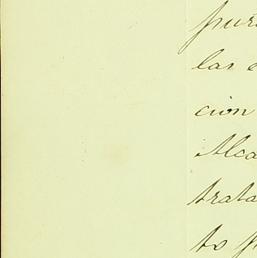 pur
las
ción
Alca
trata
to p